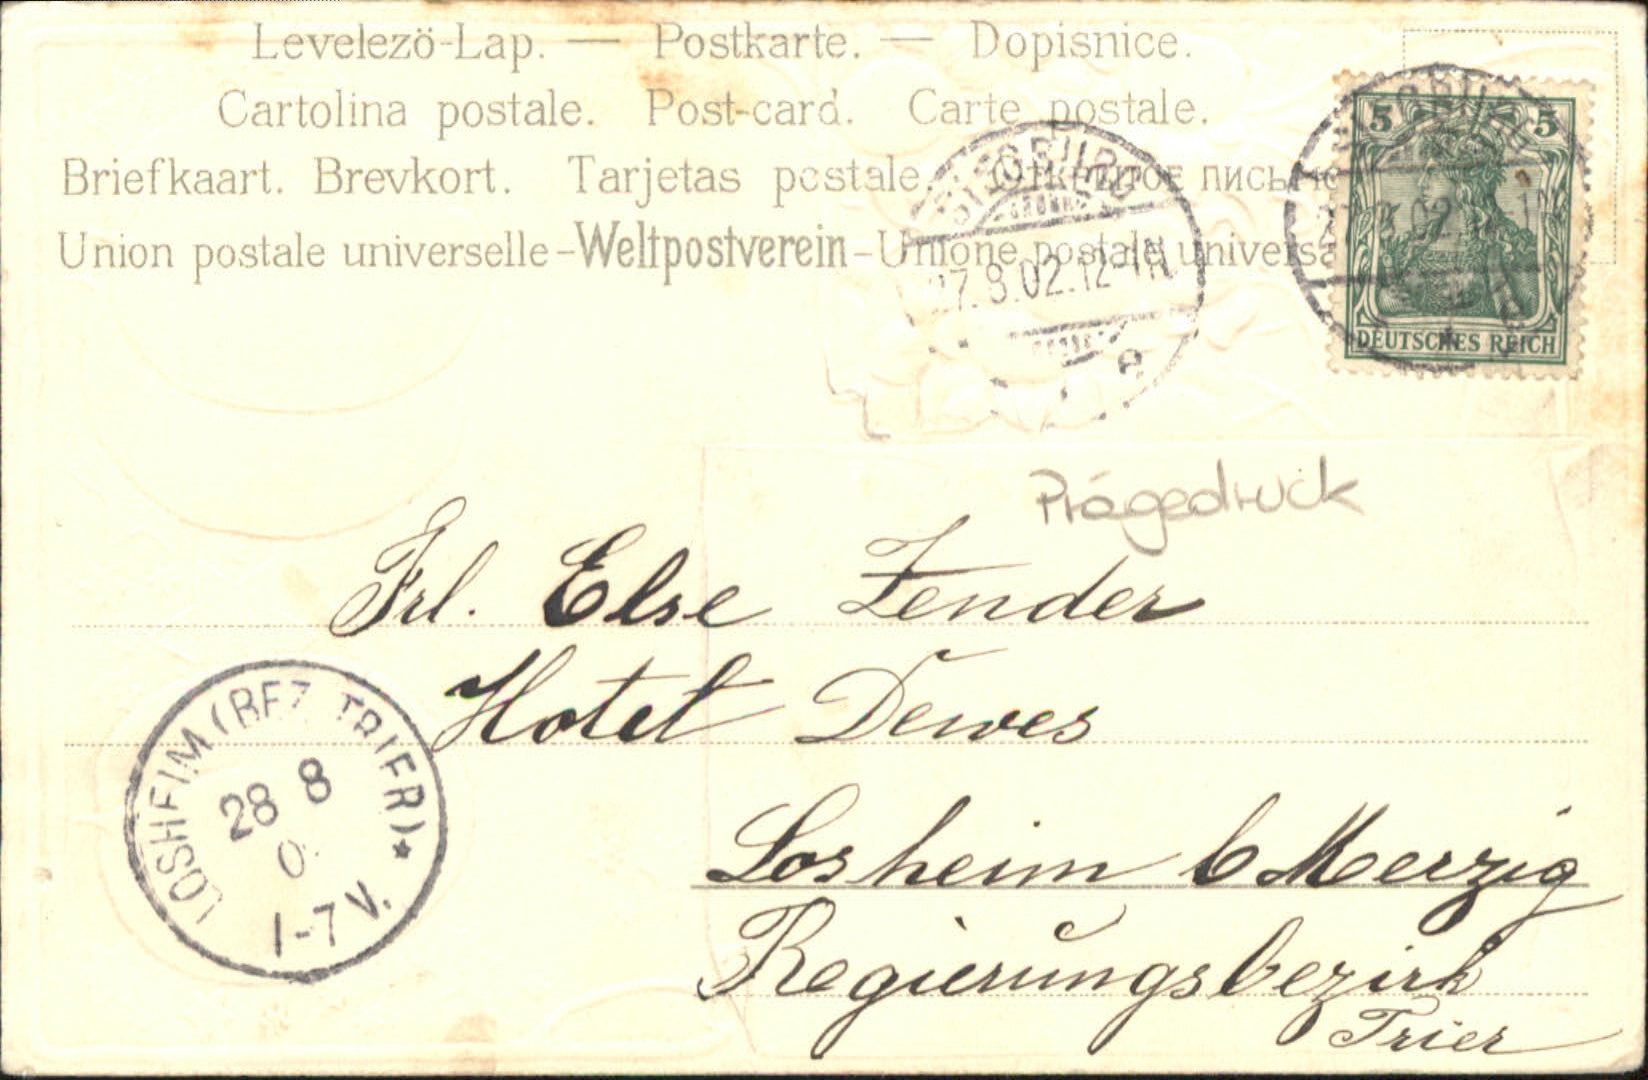 Levelezö-Lap. — Postkarte. — Dopisnice.
Cartolina postale. Post-card. Carte postale.
Briefkaart. Brevkort. Tarjetas postale.
Union postale universelle-Weltpostverein-Unione postale universa
SIEGBURG
27.8.02.12-1N
e
5 5
DEUTSCHES REICH
Prägedruck
Frl. Else Zender
Hotel Dewes
Losheim b Merzig
Regierungsbezirk
Trier
LOSHEIM (BEZ TRIER)*
28 8
0
1-7 V.